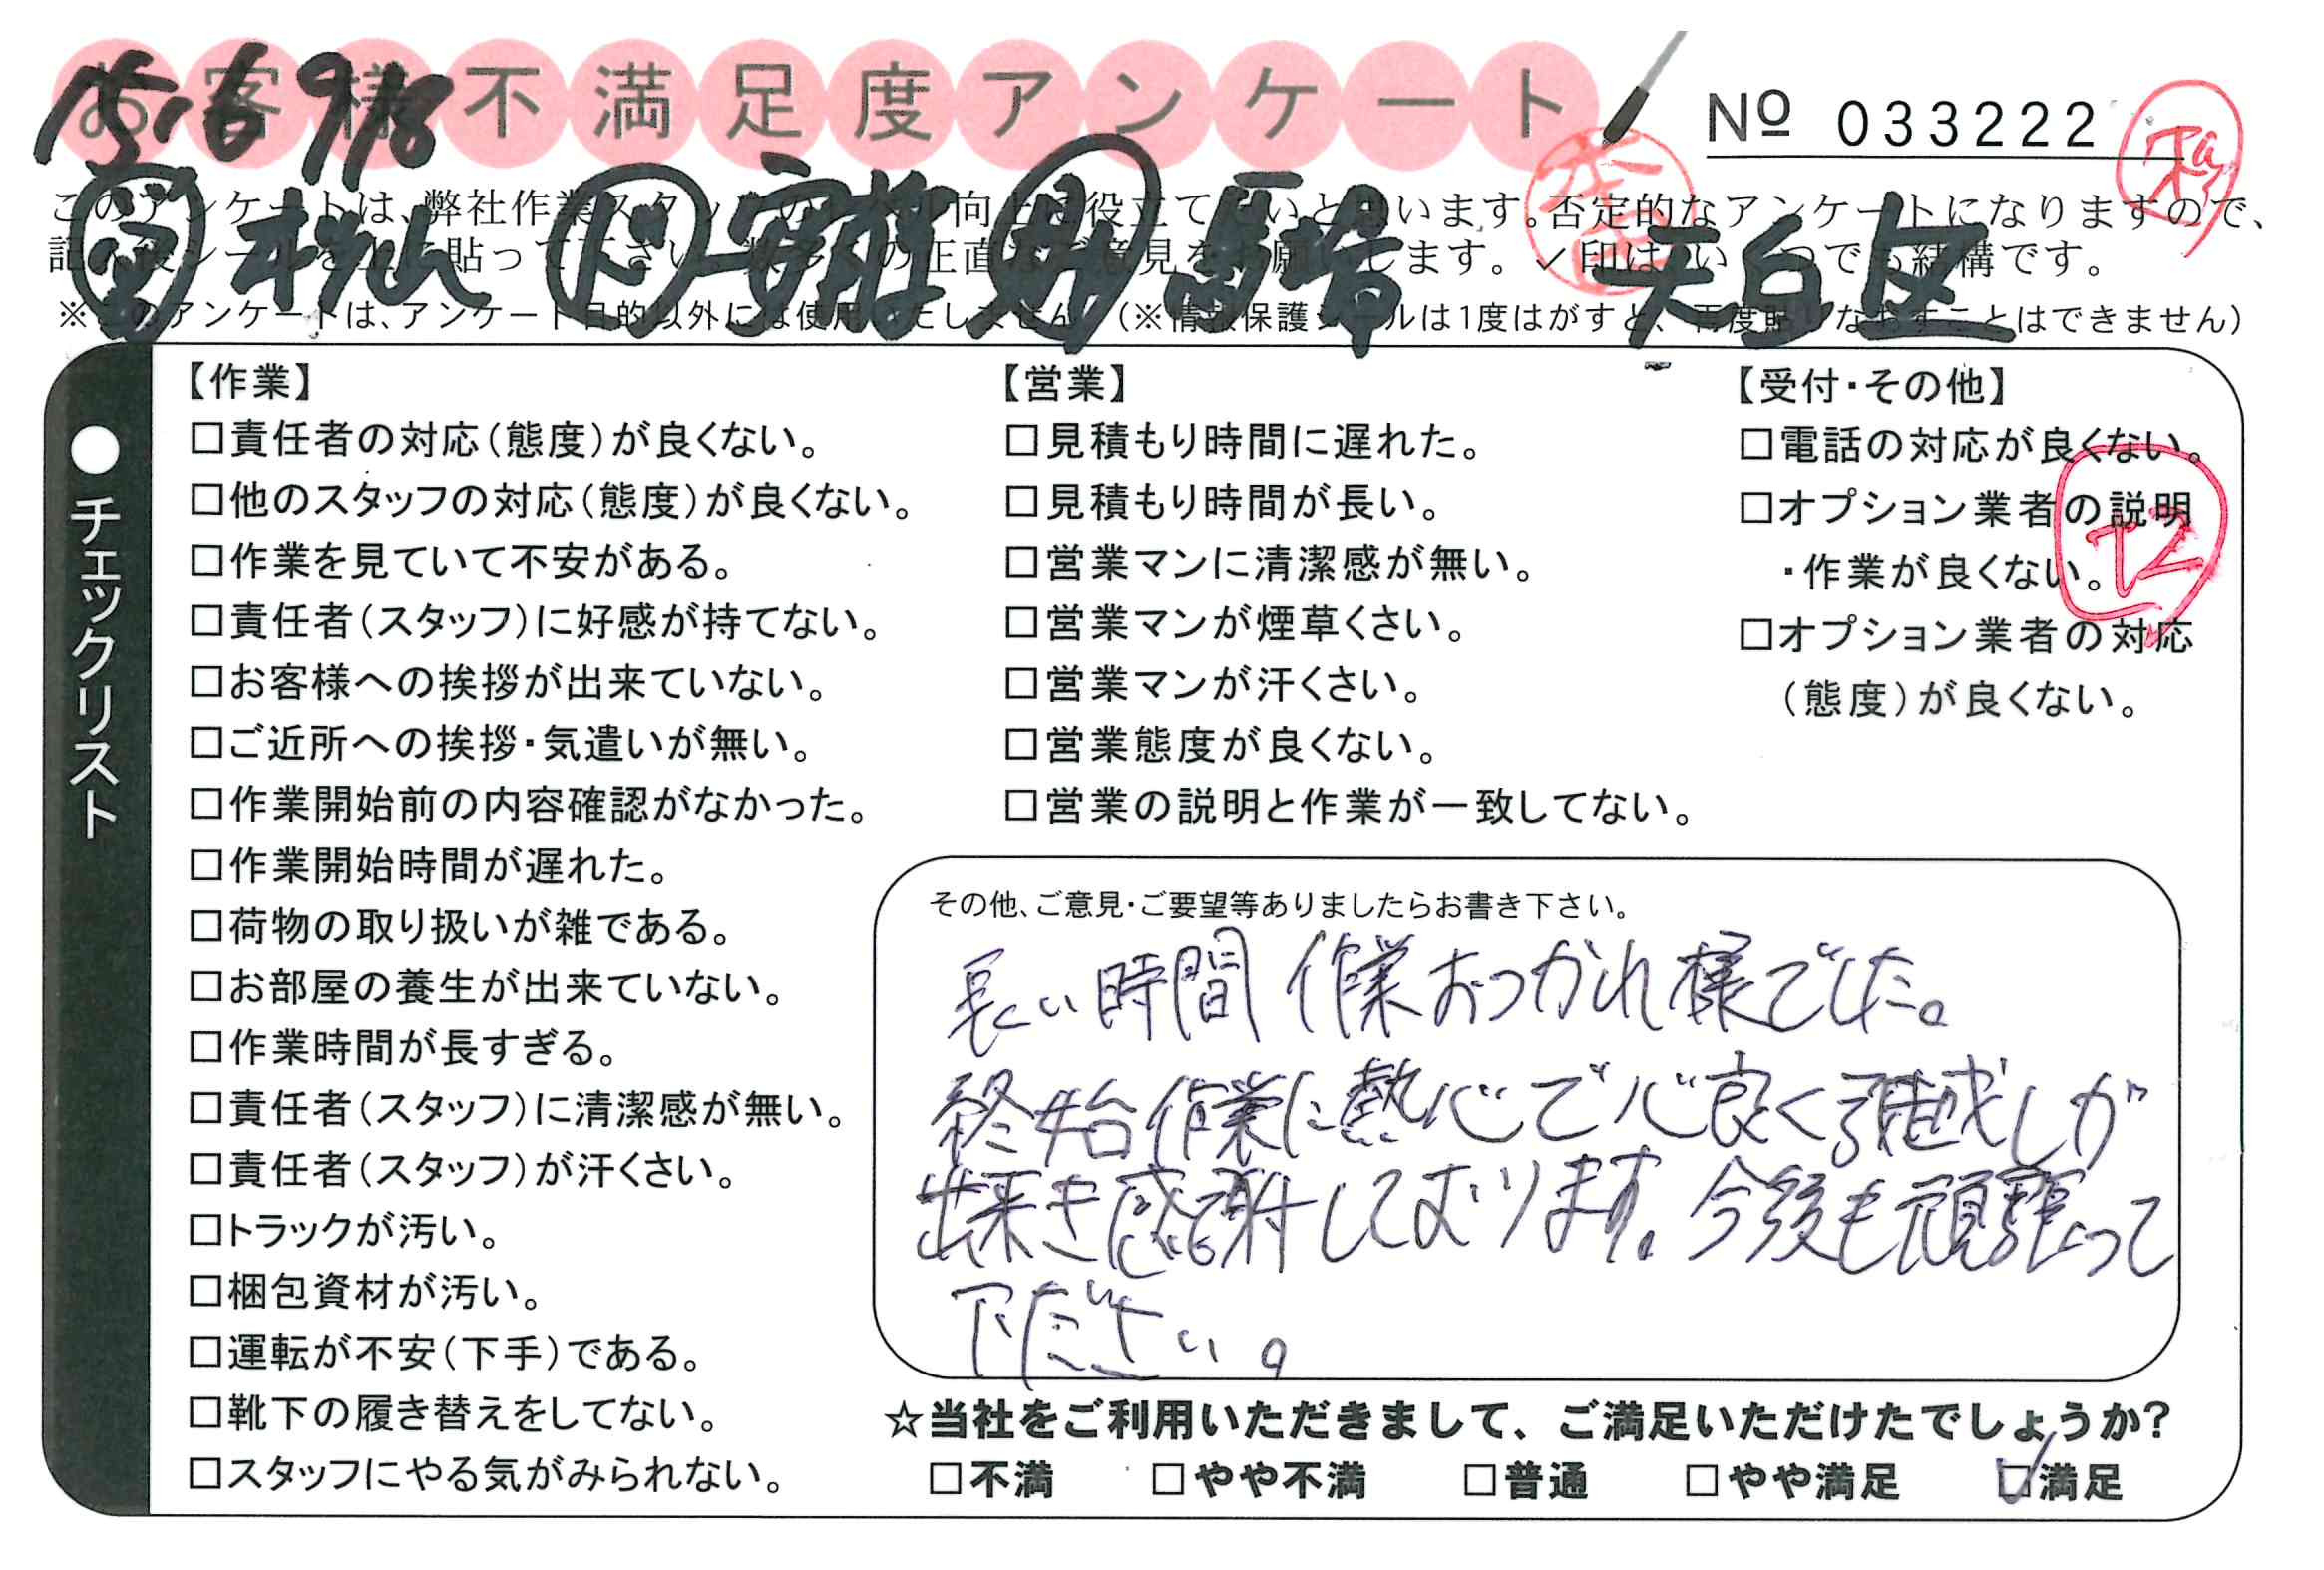 お客様不満足度アンケート
№ 033222
15.6 9/8
松山 ド 安藤 助 馬場 天白区
このアンケートは、弊社作業スタッフの 向上に役立てたいと思います。否定的なアンケートになりますので、
記入後シールを上に貼って下さい。数多くの正直なご意見をお願いします。✓印は、いくつでも結構です。
※このアンケートは、アンケート目的以外には使用いたしません。(※情報保護シールは1度はがすと、再度貼りなおすことはできません)
●チェックリスト
【作業】
□責任者の対応(態度)が良くない。
□他のスタッフの対応(態度)が良くない。
□作業を見ていて不安がある。
□責任者(スタッフ)に好感が持てない。
□お客様への挨拶が出来ていない。
□ご近所への挨拶・気遣いが無い。
□作業開始前の内容確認がなかった。
□作業開始時間が遅れた。
□荷物の取り扱いが雑である。
□お部屋の養生が出来ていない。
□作業時間が長すぎる。
□責任者(スタッフ)に清潔感が無い。
□責任者(スタッフ)が汗くさい。
□トラックが汚い。
□梱包資材が汚い。
□運転が不安(下手)である。
□靴下の履き替えをしてない。
□スタッフにやる気がみられない。
【営業】
□見積もり時間に遅れた。
□見積もり時間が長い。
□営業マンに清潔感が無い。
□営業マンが煙草くさい。
□営業マンが汗くさい。
□営業態度が良くない。
□営業の説明と作業が一致してない。
【受付・その他】
□電話の対応が良くない。
□オプション業者の説明
・作業が良くない。
□オプション業者の対応
(態度)が良くない。
+2
その他、ご意見・ご要望等ありましたらお書き下さい。
長い時間 作業おつかれ様でした。
終始作業に熱心で心良く引越しが
出来き感謝しております。今後も頑張って
下ださい。
☆当社をご利用いただきまして、ご満足いただけたでしょうか?
□不満 □やや不満 □普通 □やや満足 ☑満足